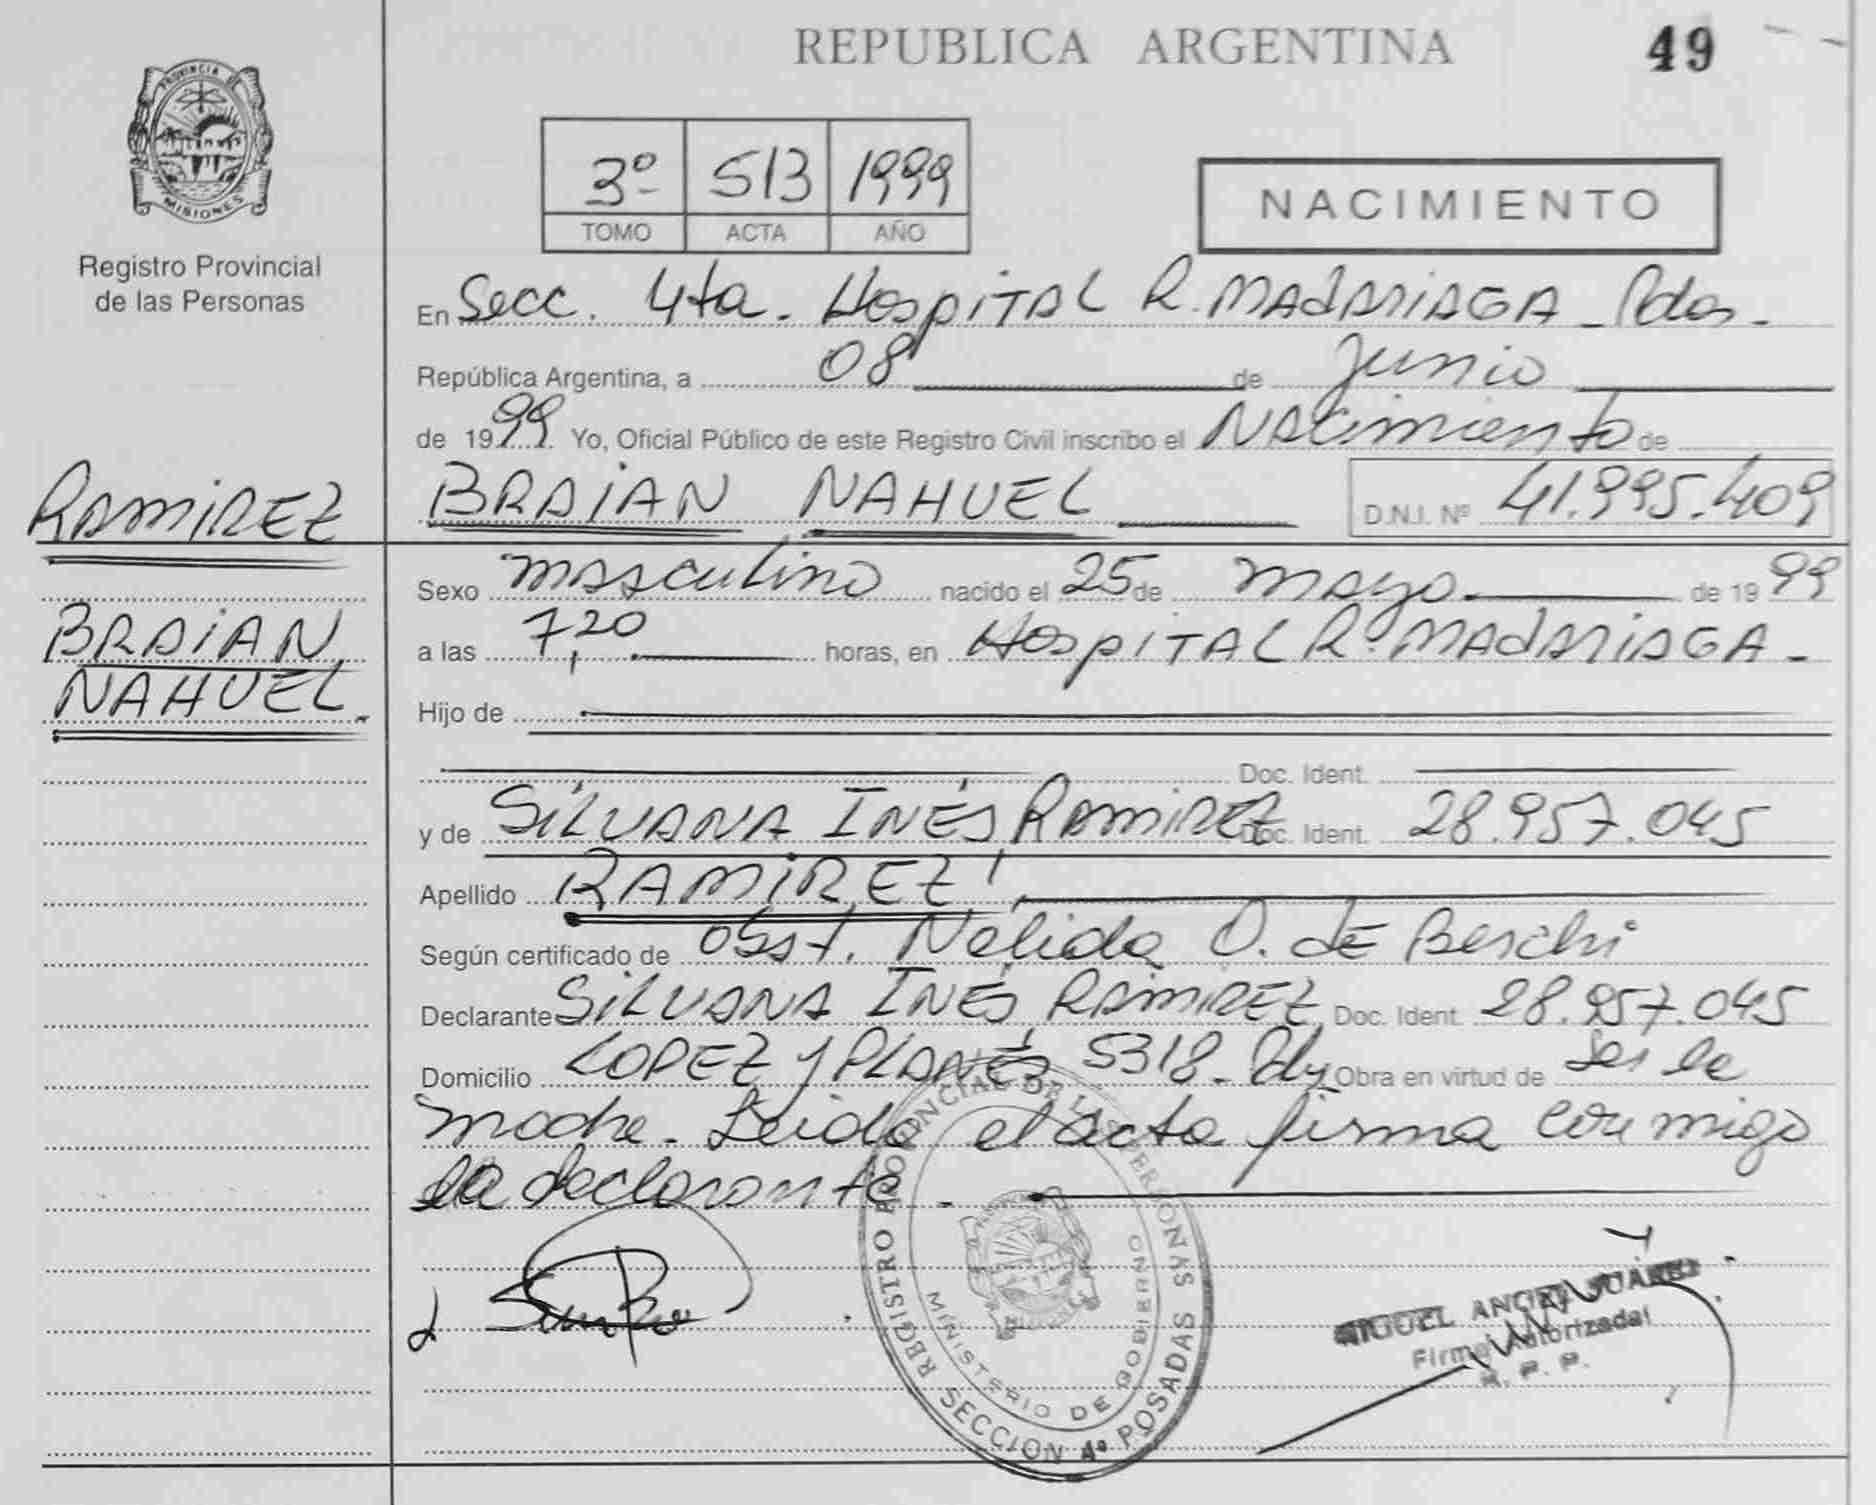 REPUBLICA ARGENTINA
49
PROVINCIA DE
MISIONES
Registro Provincial
de las Personas
3º 513 1999
TOMO ACTA AÑO
NACIMIENTO
En Secc. 4ta. Hospital R. Madariaga - Pdas.
República Argentina, a 08 de Junio
de 1999 Yo, Oficial Público de este Registro Civil inscribo el Nacimiento de
BRAIAN NAHUEL D.N.I. Nº 41.995.409
RAMIREZ
BRAIAN
NAHUEL.
Sexo masculino nacido el 25 de mayo de 1999
a las 7,20 horas, en Hospital R. Madariaga -
Hijo de
Doc. Ident.
y de Silvana Inés Ramirez Doc. Ident. 28.957.045
Apellido RAMIREZ
Según certificado de Obst. Nélida O. de Beschi
Declarante Silvana Inés Ramirez Doc. Ident. 28.957.045
Domicilio Lopez y Planés 5318 - Obra en virtud de ser la
madre. Leida el acta firma conmigo
la declarante.
REGISTRO PROVINCIAL DE LAS PERSONAS
MINISTERIO DE GOBIERNO
SECCION 4º POSADAS
MIGUEL ANGEL JUAREZ
Firma Autorizada
R. P. P.